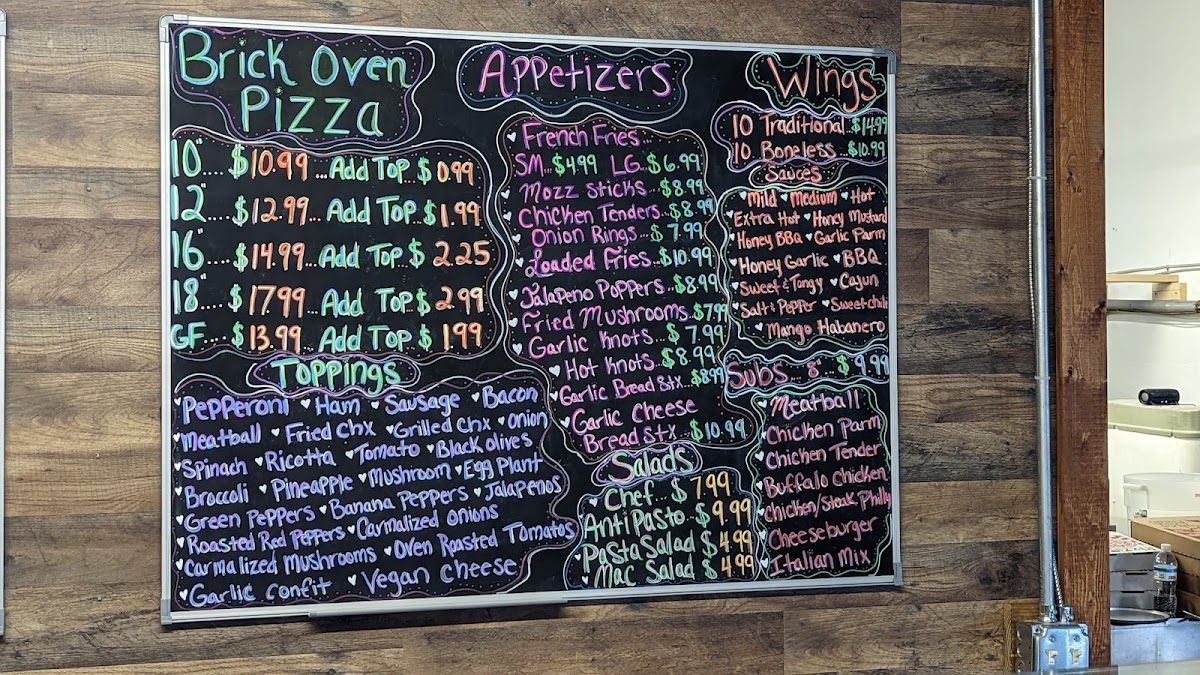 Brick Oven
Pizza
10".... $10.99 ...Add Top..$0.99
12".... $12.99... Add Top..$1.99
16".... $14.99...Add Top.$ 2.25
18".... $17.99 Add Top $2.99
GF... $13.99 Add Top $1.99
Toppings
Pepperoni ♥ Ham ♥ Sausage ♥ Bacon
♥ Meatball ♥ Fried Chx ♥ Grilled Chx ♥ Onion
♥ Spinach ♥ Ricotta ♥ Tomato ♥ Black olives
♥ Broccoli ♥ Pineapple ♥ Mushroom ♥ Egg Plant
♥ Green Peppers ♥ Banana Peppers ♥ Jalapenos
♥ Roasted Red Peppers ♥ Carmalized onions
♥ Carmalized mushrooms ♥ Oven Roasted Tomatos
♥ Garlic confit ♥ Vegan cheese
Appetizers
♥ French Fries
SM...$4.99 LG...$6.99
♥ Mozz Sticks...$8.99
♥ Chicken Tenders...$8.99
♥ Onion Rings...$7.99
♥ Loaded Fries...$10.99
♥ Jalapeno Poppers..$8.99
♥ Fried Mushrooms..$7.99
♥ Garlic Knots...$7.99
♥ Hot Knots...$8.99
♥ Garlic Bread Stx...$8.99
♥ Garlic Cheese
Bread Stx..$10.99
Salads
♥ Chef...$7.99
♥ AntiPasto..$9.99
♥ Pasta Salad $4.99
♥ Mac Salad $4.99
Wings
10 Traditional..$14.99
10 Boneless...$10.99
Sauces
♥ Mild ♥ Medium ♥ Hot
♥ Extra Hot ♥ Honey Mustard
♥ Honey BBQ ♥ Garlic Parm
♥ Honey Garlic ♥ BBQ
♥ Sweet & Tangy ♥ Cajun
♥ Salt & Pepper ♥ Sweet chili
♥ Mango Habanero
Subs... 8"...$9.99
♥ Meatball
♥ Chicken Parm
♥ Chicken Tender
♥ Buffalo Chicken
♥ Chicken/Steak Philly
♥ Cheeseburger
♥ Italian Mix